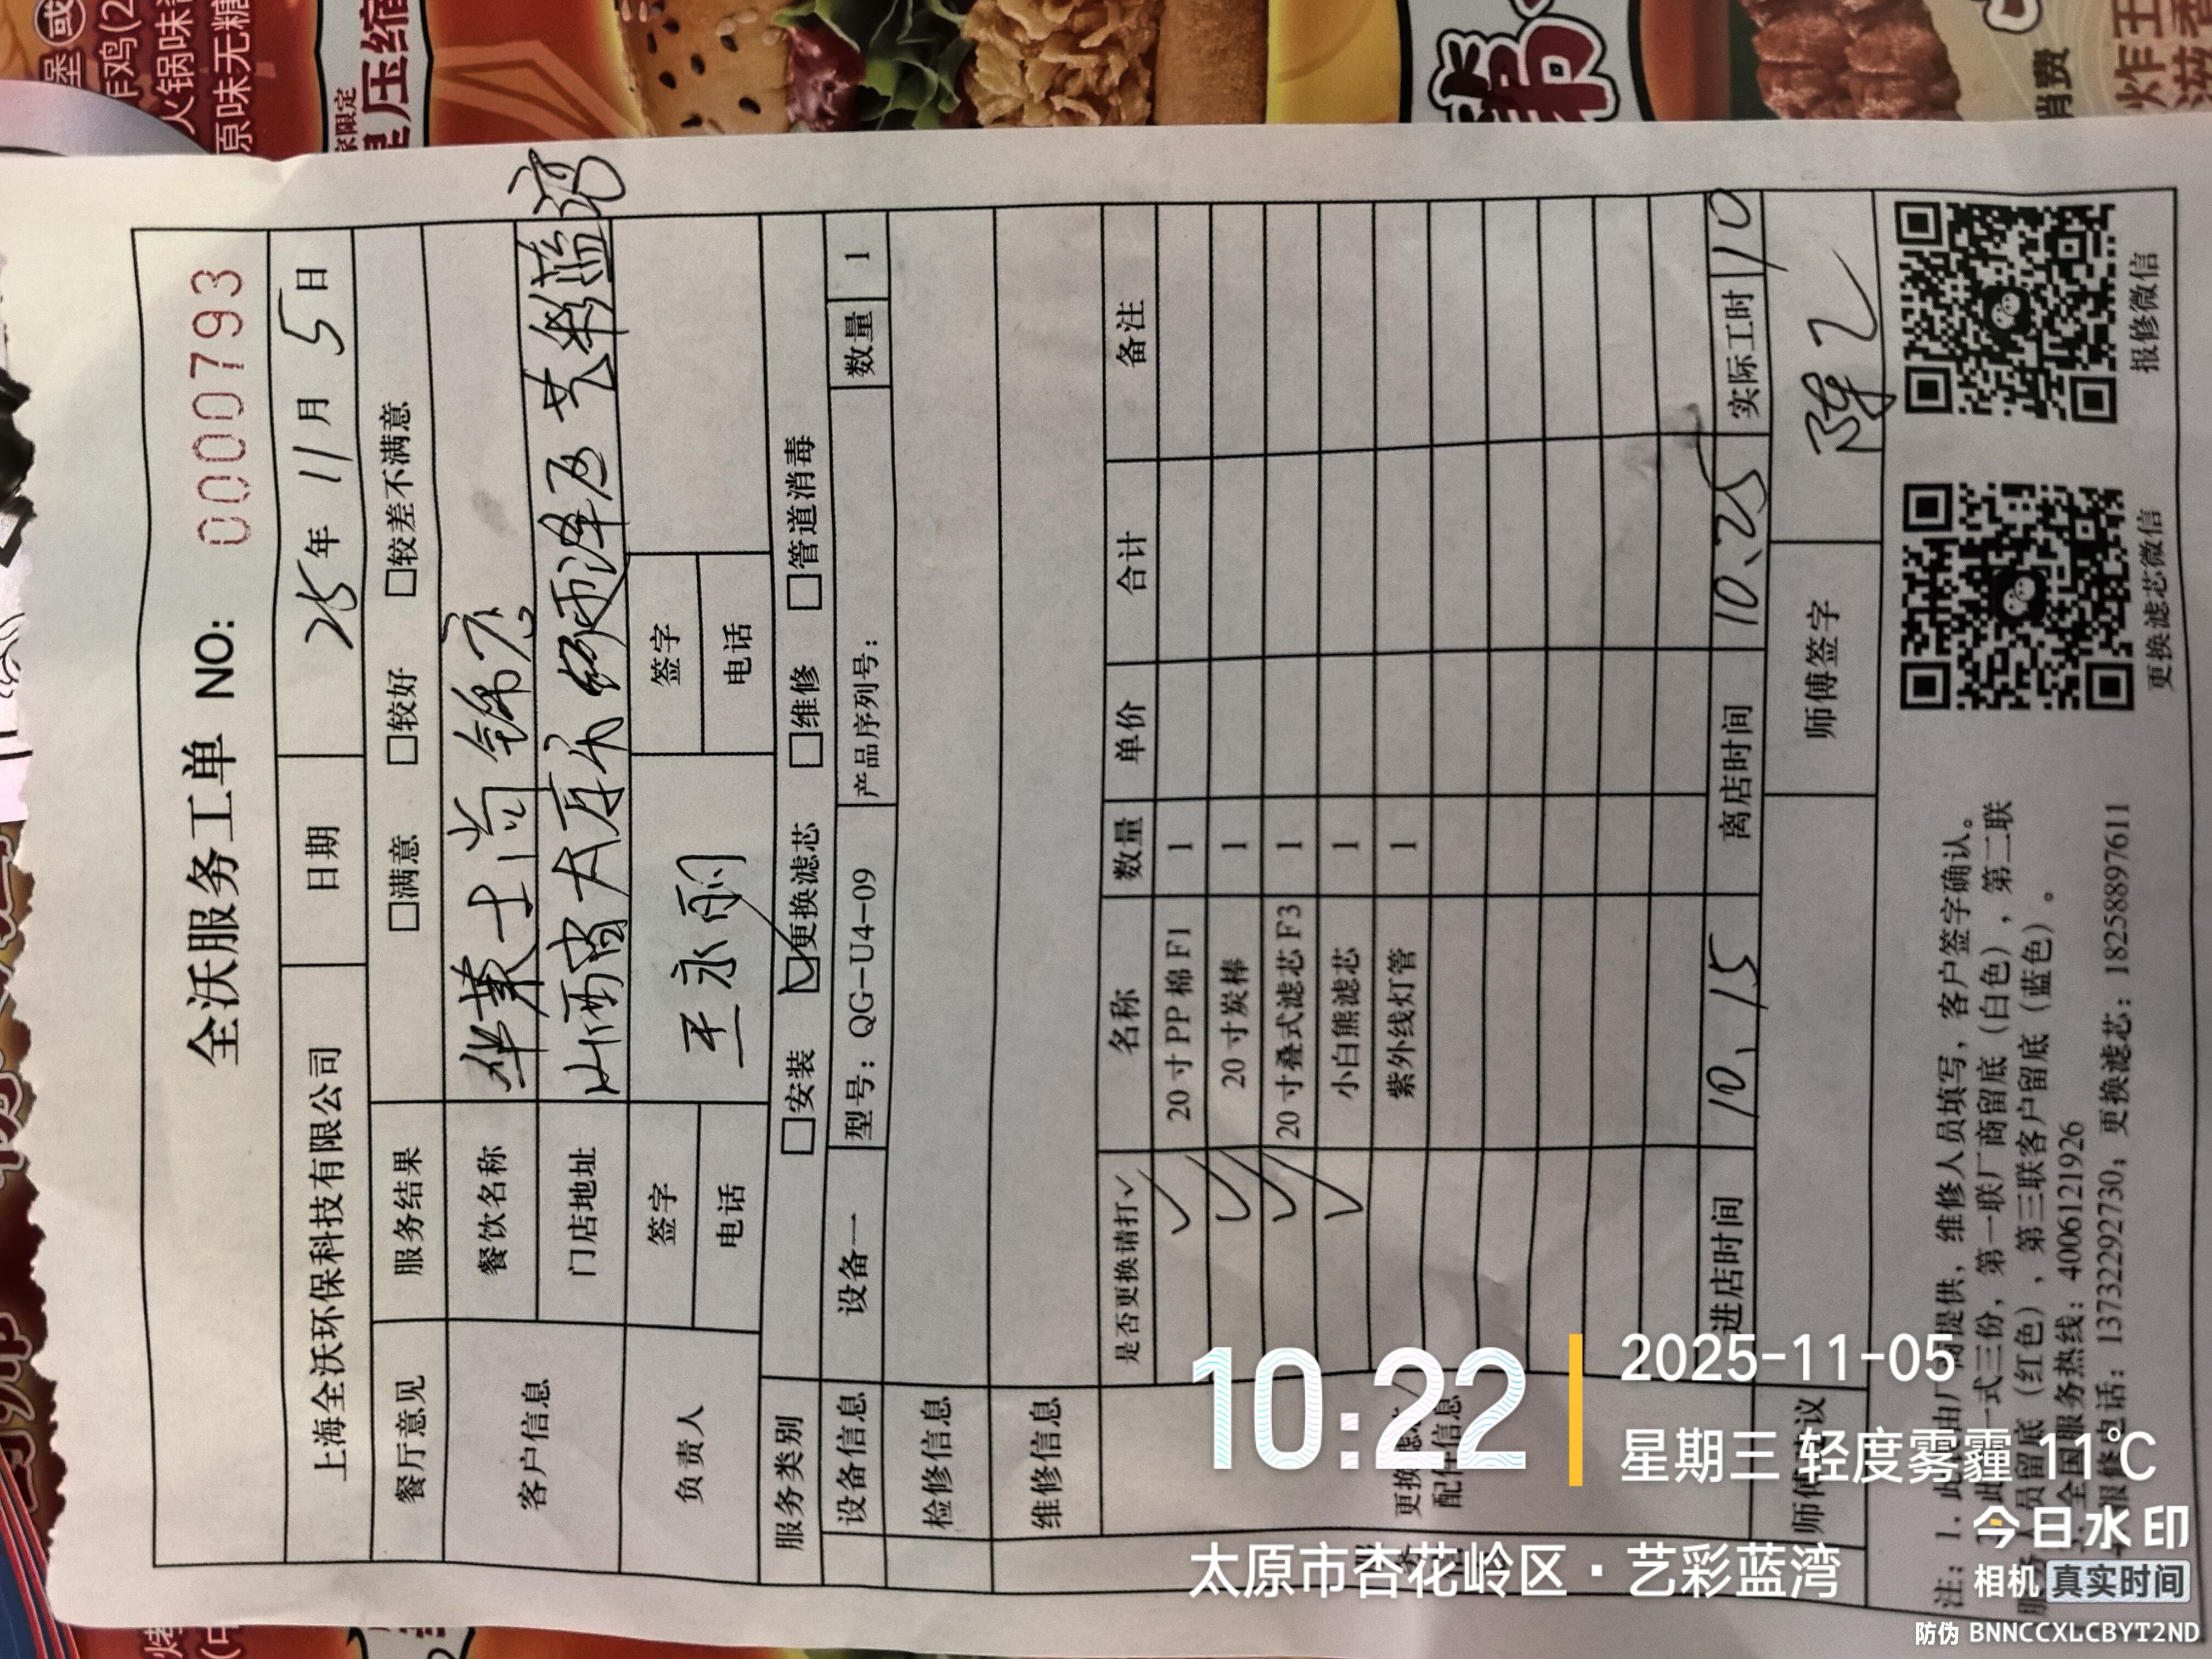 全沃服务工单 NO: 0000793
上海全沃环保科技有限公司 日期 25年 11月 5日
餐厅意见 服务结果 □满意 □较好 □较差不满意
客户信息 餐饮名称 华莱士尚锦店
门店地址 山西省太原市 艺彩蓝湾
负责人 签字 王永丽 签字
电话 电话
服务类别 □安装 ☑更换滤芯 □维修 □管道消毒
设备信息 设备一 型号：QG-U4-09 产品序列号： 数量 1
检修信息
维修信息
是否更换请打✓ 名称 数量 单价 合计 备注
✓ 20寸PP棉F1 1
✓ 20寸炭棒 1
✓ 20寸叠式滤芯F3 1
✓ 小白熊滤芯 1
紫外线灯管 1
更换滤芯/
配件信息
进店时间 10、15 离店时间 10、25 实际工时 10
师傅建议 师傅签字 陈
注：1. 此 由厂商提供，维修人员填写，客户签字确认。
此 一式三份，第一联厂商留底（白色），第二联
服务人员留底（红色），第三联客户留底（蓝色）。
全国服务热线：4006121926
报修电话：13732292730；更换滤芯：18258897611
更换滤芯微信
报修微信
10:22
2025-11-05
星期三 轻度雾霾 11℃
太原市杏花岭区·艺彩蓝湾
今日水印
相机 真实时间
防伪 BNNCCXLCBYT2ND
堡 或
炸鸡(2
火锅味
原味无糖
家限定
压缩
消费
炸王